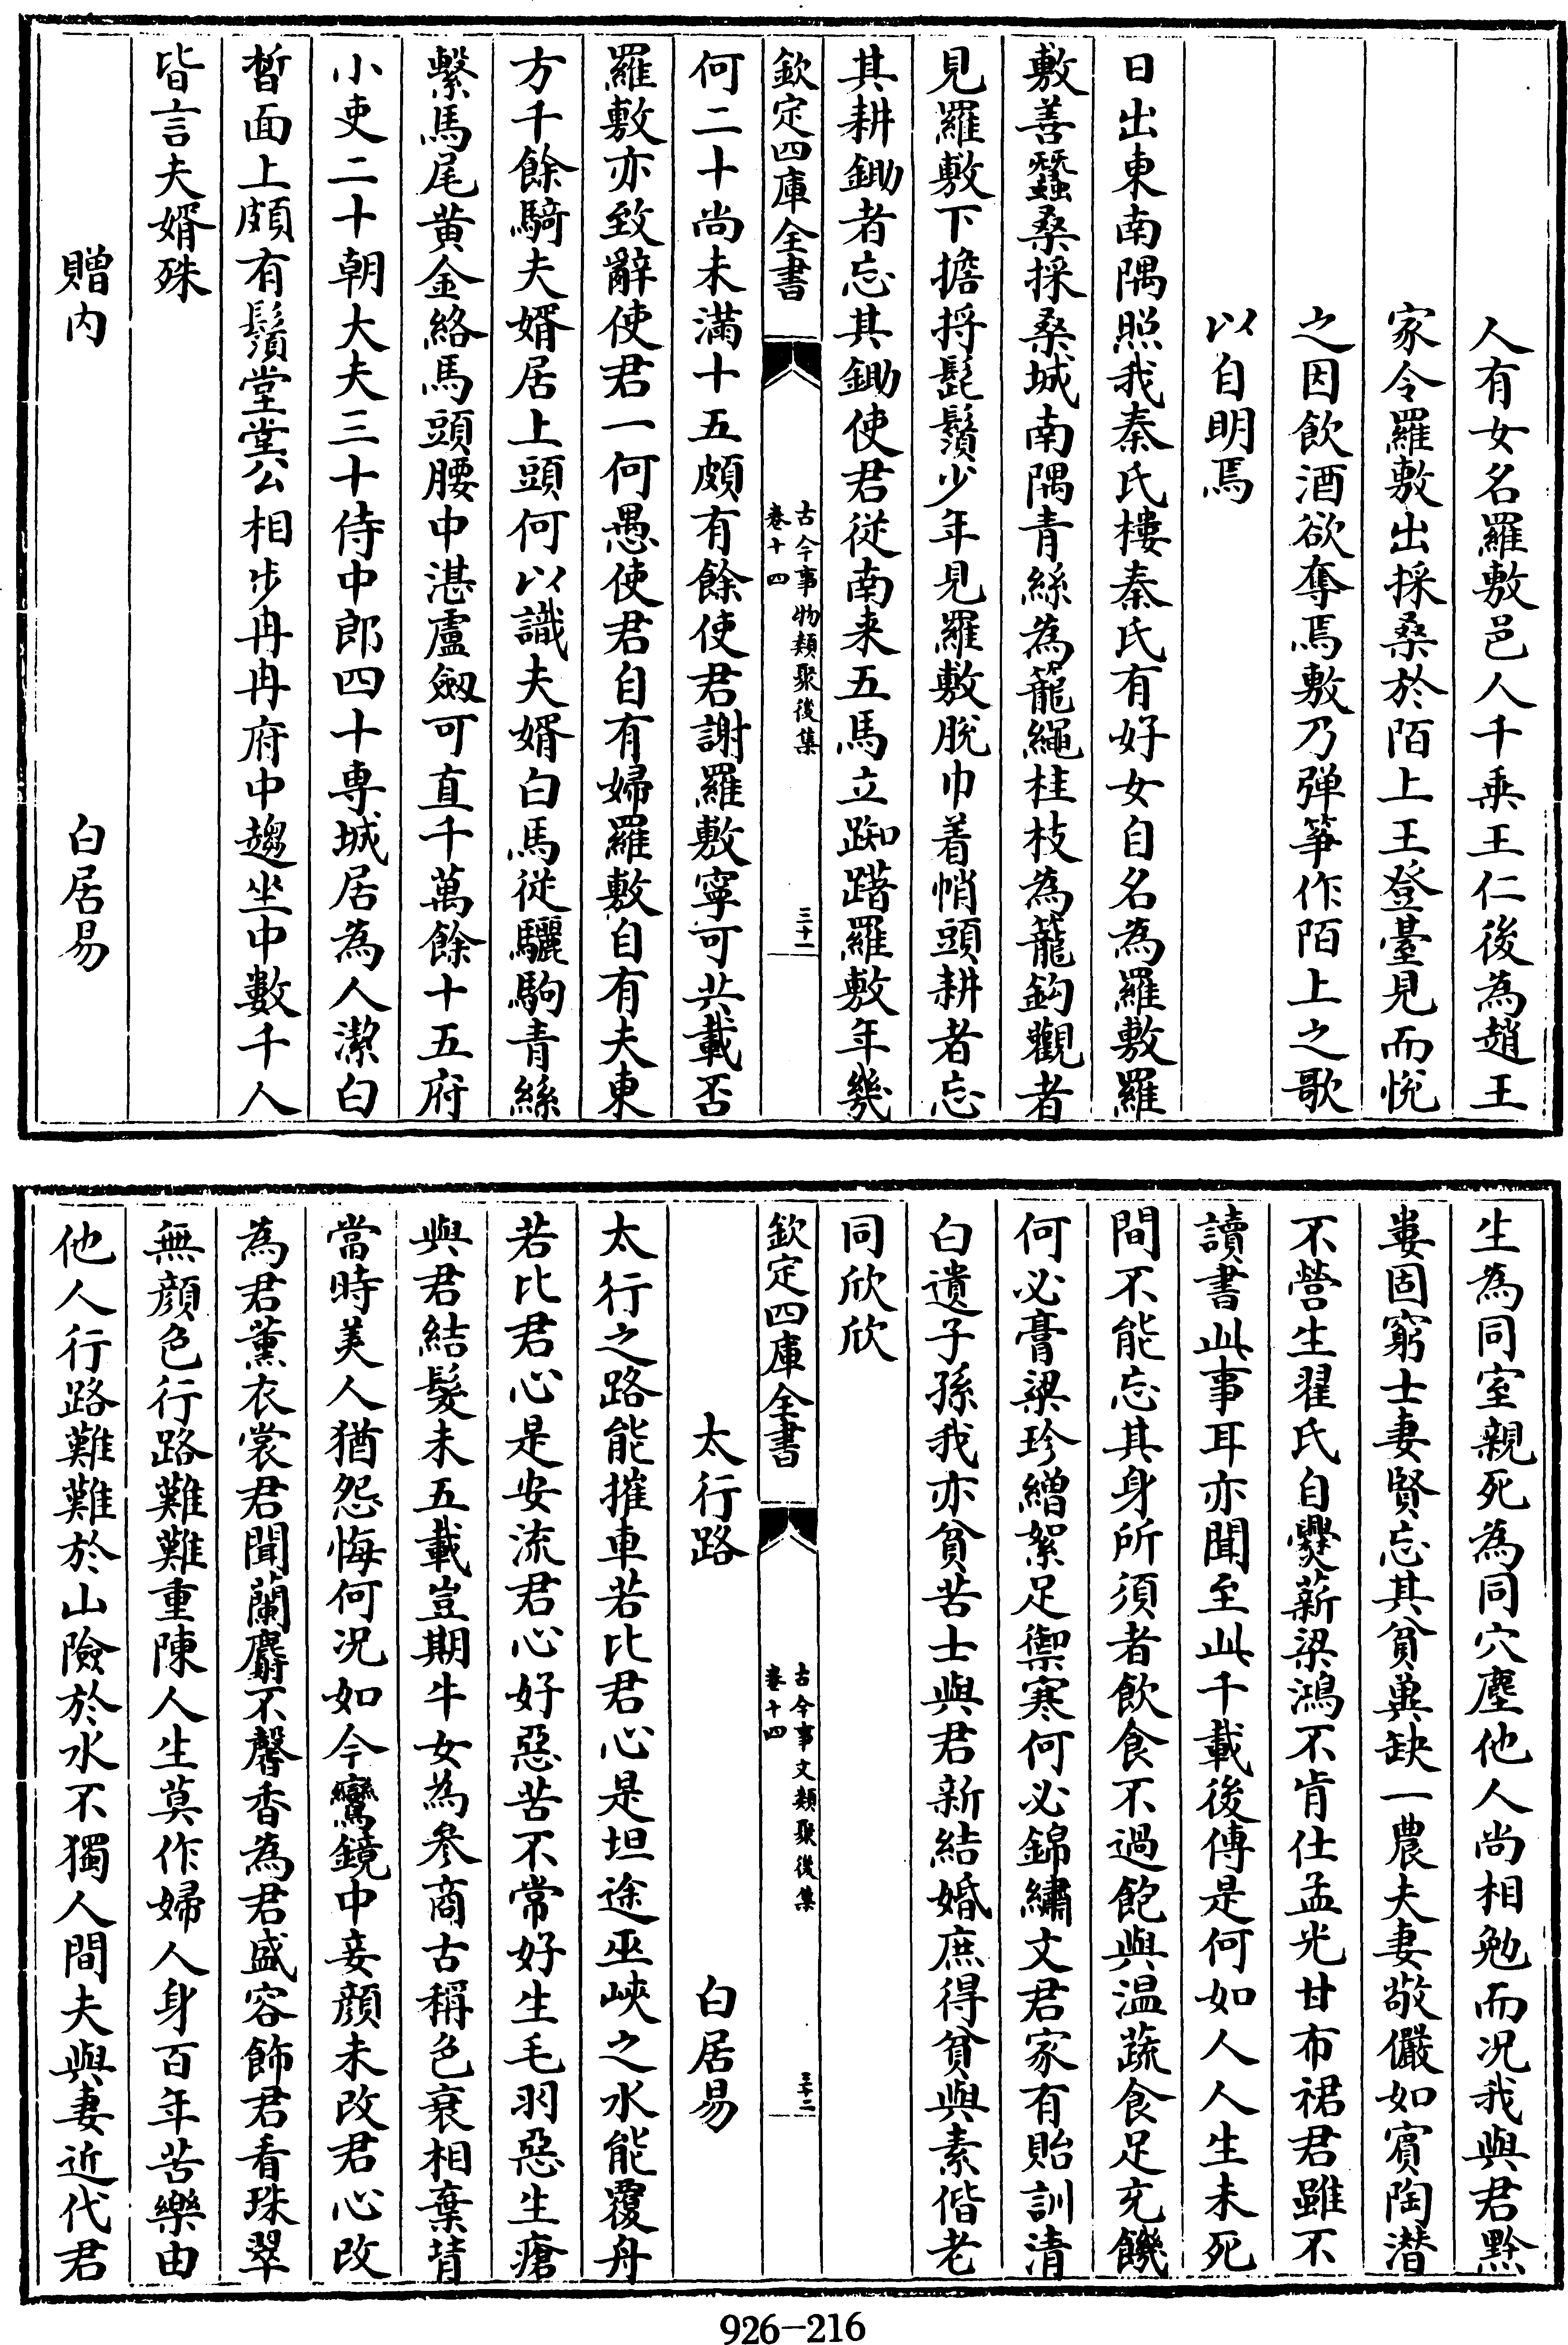 人有女名羅敷邑人千乘王仁後為趙王
家令羅敷出採桑於陌上王登臺見而悅
之因飲酒欲奪焉敷乃弹筝作陌上之歌
以自明焉
日出東南隅照我秦氏樓秦氏有好女自名為羅敷羅
敷善蠶桑採桑城南隅青絲為籠繩桂枝為籠鈎觀者
見羅敷下擔捋髭鬚少年見羅敷脫巾着帩頭耕者忘
其耕鋤者忘其鋤使君從南来五馬立踟躇羅敷年幾
欽定四庫全書
古今事物類聚後集
卷十四
三十一
何二十尚未滿十五頗有餘使君謝羅敷寧可共載否
羅敷亦致辭使君一何愚使君自有婦羅敷自有夫東
方千餘騎夫婿居上頭何以識夫婿白馬從驪駒青絲
繫馬尾黄金絡馬頭腰中湛盧劔可直千萬餘十五府
小吏二十朝大夫三十侍中郎四十専城居為人潔白
晳面上頗有鬚堂堂公相步冉冉府中趨坐中數千人
皆言夫婿殊
贈内
白居易
生為同室親死為同穴塵他人尚相勉而况我與君黔
婁固窮士妻賢忘其貧兾缺一農夫妻敬儼如賓陶潜
不營生翟氏自爨薪梁鴻不肯仕孟光甘布裙君雖不
讀書此事耳亦聞至此千載後傳是何如人人生未死
間不能忘其身所須者飲食不過飽與温蔬食足充饑
何必膏粱珍繒絮足禦寒何必錦繡文君家有貽訓清
白遺子孫我亦貧苦士與君新結婚庶得貧與素偕老
同欣欣
欽定四庫全書
古今事文類聚後集
卷十四
三十二
太行路
白居易
太行之路能摧車若比君心是坦途巫峽之水能覆舟
若比君心是安流君心好惡苦不常好生毛羽惡生瘡
與君結髮未五載豈期牛女為參商古稱色衰相棄背
當時美人猶怨悔何况如今鸞鏡中妾顔未改君心改
為君薰衣裳君聞蘭麝不馨香為君盛容飾君看珠翠
無顔色行路難難重陳人生莫作婦人身百年苦樂由
他人行路難難於山險於水不獨人間夫與妻近代君
926-216